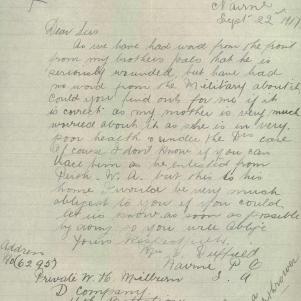 Nairne
Sept 22nd 1917
Dear Sirs
As we have had word from the front
from my brothers pals that he is
seriously wounded, but have had
no word from the Military about it
Could you find out for me if it
is correct as my mother is very much
worried about it as she is in very
poor health & under the Drs care
Of course I don't know if you can
trace him as he enlisted from
Perth. W. A. but this is his
home I would be very much
obliged to you if you could
let us know as soon as possible
by so you will oblige
Yours Respectfully
Nairne P O
S. A
Address
No (6295)
Private W. H. Milburn
D Company